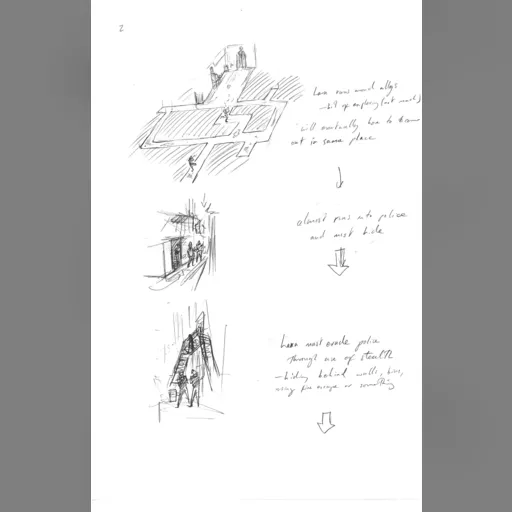 2
Leon runs around alleys
- bit of exploring (not much)
will eventually have to come
out in same place
almost runs into police
and must hide
Leon must evade police
through use of stealth
- hiding behind walls, bins,
using fire escape or something